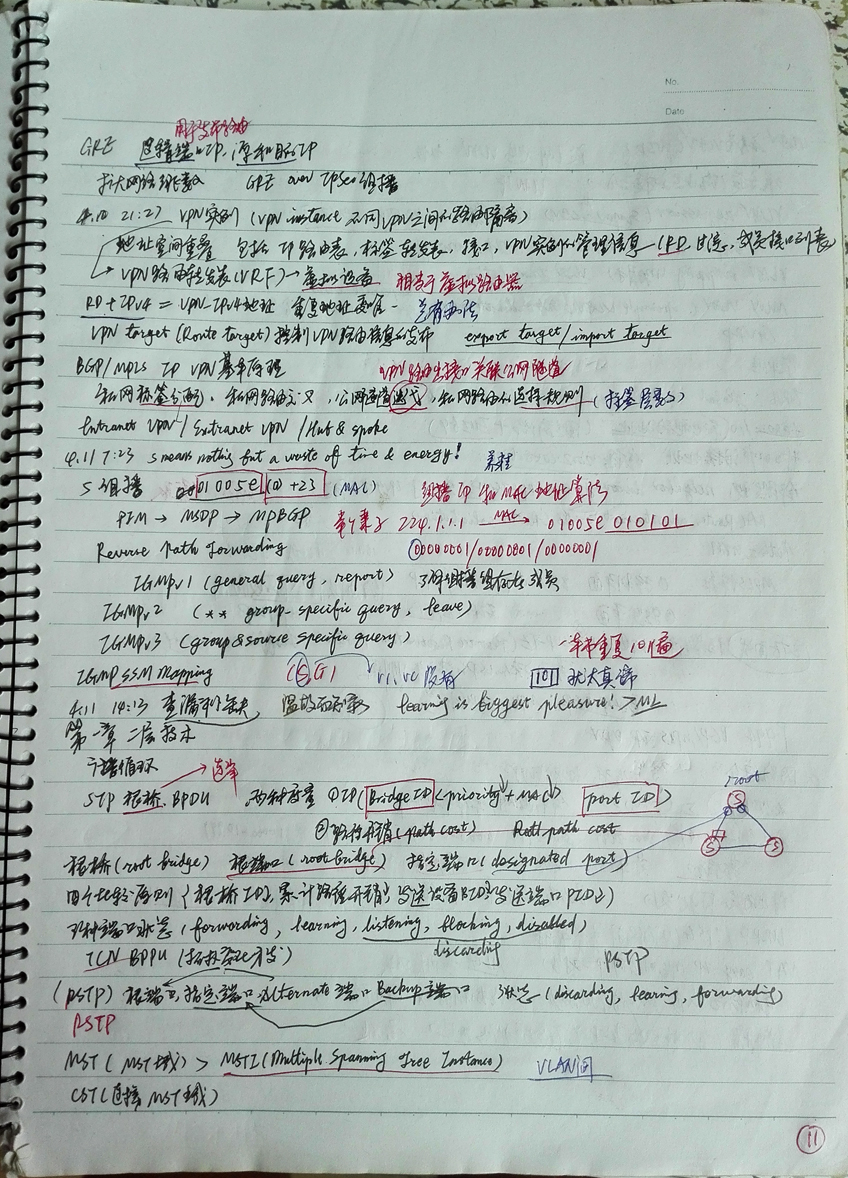 No.
Date
用于发布路由
GRE 隧道端口IP、源和目的IP
扩大网络跳数 GRE over IPSec 组播
4.10 21:27 VPN实例 (VPN instance 不同VPN之间的路由隔离)
地址空间重叠 包括IP路由表，标签转发表，接口，VPN实例的管理信息 (RD, 过滤, 成员接口列表
VPN路由转发表(VRF) — 虚拟设备 相当于虚拟路由器
RD+IPv4 = VPN-IPv4地址
VPN target (Route target) 控制VPN路由信息的发布 export target/import target
BGP/MPLS IP VPN基本原理 VPN路由出接口关联公网隧道
私网标签分配，私网路由交叉，公网隧道迭代，私网路由的选择规则 (标签层数)
Intranet VPN / Extranet VPN / Hub & spoke
4.11 7:23 S means nothing but a waste of time & energy!
S 组播 01005e (0)+23 (MAC) 组播IP和MAC地址算法
PIM → MSDP → MPBGP 224.1.1.1 MAC 01005e 010101
Reverse path forwarding 00000001/00000001/00000001
IGMPv1 (general query, report) 了解组播组存在成员
IGMPv2 (** group-specific query, leave)
IGMPv3 (group&source specific query) 一本书重复101遍
IGMP SSM Mapping (S,G) v1, v2 101 犹太真谛
4.11 14:13 查漏补缺 温故而知新 learning is biggest pleasure! > ML
第一章 二层技术
广播循环
STP 根桥, BPDU 选举 两种度量 ①ID (Bridge ID <priority + MAC> port ID) root
②路径开销 (path cost) Root path cost
根桥 (root bridge) 根端口 (root bridge) 指定端口 (designated port)
四个比较原则 (根桥ID, 累计路径开销, 发送设备BID, 发送端口PID)
五种端口状态 (forwarding, learning, listening, blocking, disabled)
TCN BPDU (拓扑变化) discarding RSTP
(RSTP) 根端口, 指定端口 Alternate端口 Backup端口 3状态 (discarding, learing, forwarding)
RSTP
MST (MST域) > MSTI (Multiple Spanning Tree Instance) VLAN间
CST (连接MST域)
11